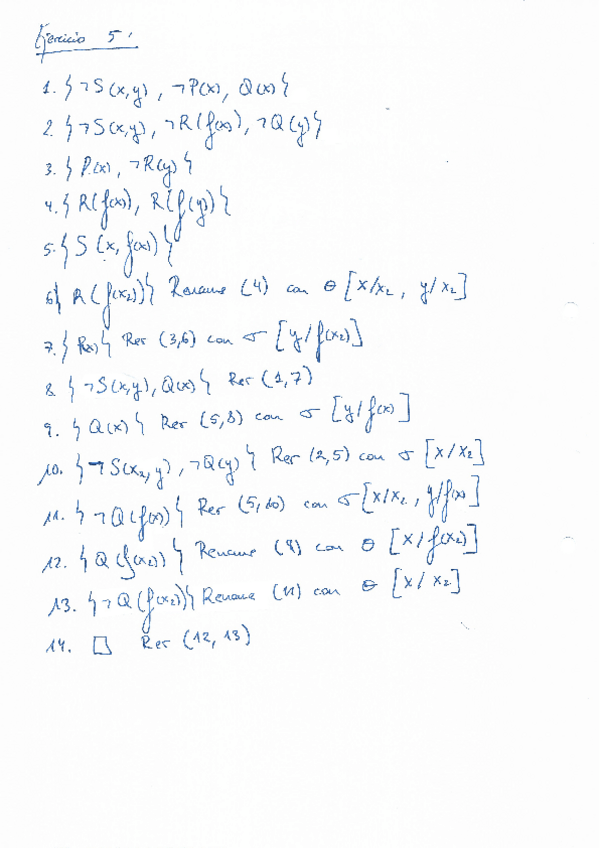 Ejercicio 5:
1. { ¬S(x,y) , ¬P(x), Q(x) }
2. { ¬S(x,y), ¬R(f(x)), ¬Q(y) }
3. { P(x), ¬R(y) }
4. { R(f(x)), R(f(y)) }
5. { S(x, f(x)) }
6. { R(f(x₂)) } Rename (4) con θ [x/x₂, y/x₂]
7. { P(x) } Res (3,6) con σ [y/f(x₂)]
8. { ¬S(x,y), Q(x) } Res (1,7)
9. { Q(x) } Res (5,8) con σ [y/f(x)]
10. { ¬S(x₂,y), ¬Q(y) } Res (2,5) con σ [x/x₂]
11. { ¬Q(f(x)) } Res (5,10) con σ [x/x₂, y/f(x)]
12. { Q(f(x₂)) } Rename (9) con θ [x/f(x₂)]
13. { ¬Q(f(x₂)) } Rename (11) con θ [x/x₂]
14. □ Res (12, 13)